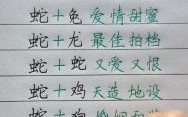 蛇+兔 爱情甜蜜
蛇+龙 最佳拍档
蛇+蛇 又爱又恨
蛇+鸡 天造地设
蛇+狗 婚姻